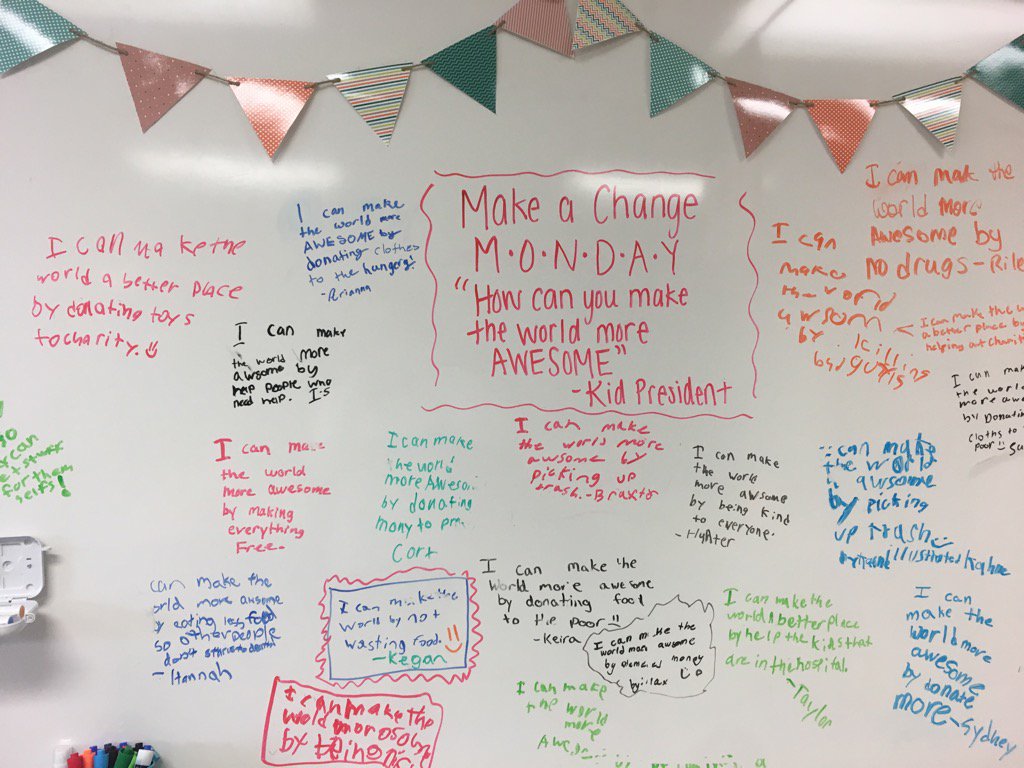 Make a Change
M·O·N·D·A·Y
"How can you make
the world more
AWESOME"
-Kid President
I can make the
world a better place
by donating toys
to charity.
I can make
the world more
AWESOME by
donating clothes
to the hungery!
-Arianna
I can make
the world more
awsome by
help people who
need help. I-S
I can make the
world more
Awesome by
no drugs-Rile
I can
make
the world
awsom
by killing
bad guys
I can make the w
a better place by
helping at charit
I can make
the world
more awe
by Donating
cloths to
poor!!
for them
selfs!
I can make
the world
more awesome
by making
everything
Free.
I can make
the world
more Awesom
by donating
mony to
Cort
I can make
the world more
awsome by
picking up
trash.-Braxton
I can make
the world
more awsome
by being kind
to everyone.
-Hunter
I can make
the world
awsome
by picking
up trash
can make the
orld more awsome
y eating less food
so other people
don't starve to death
-Hannah
I can make the
world by not
wasting food.
-Kegan
I can make the
world more awesome
by donating foof
to the poor!!
-Keira
I can make the
world more awsome
by money
I can make the
world A better place
by help the kids that
are in the hospital.
-Taylor
I can
make the
world more
awesome
by donate
more-Sydney
I can make the
world
by being
I can make
the world
more
Awesom